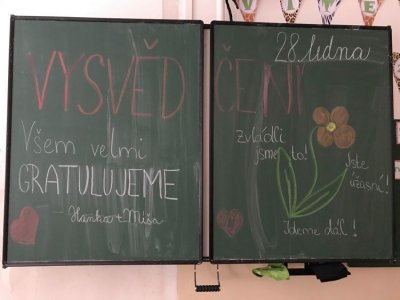 28. ledna
VYSVĚDČENÍ
Všem velmi
GRATULUJEME
- Hanka + Míša
zvládli
jsme to!
Jste
úžasní!
Jdeme dál!
VÍTE